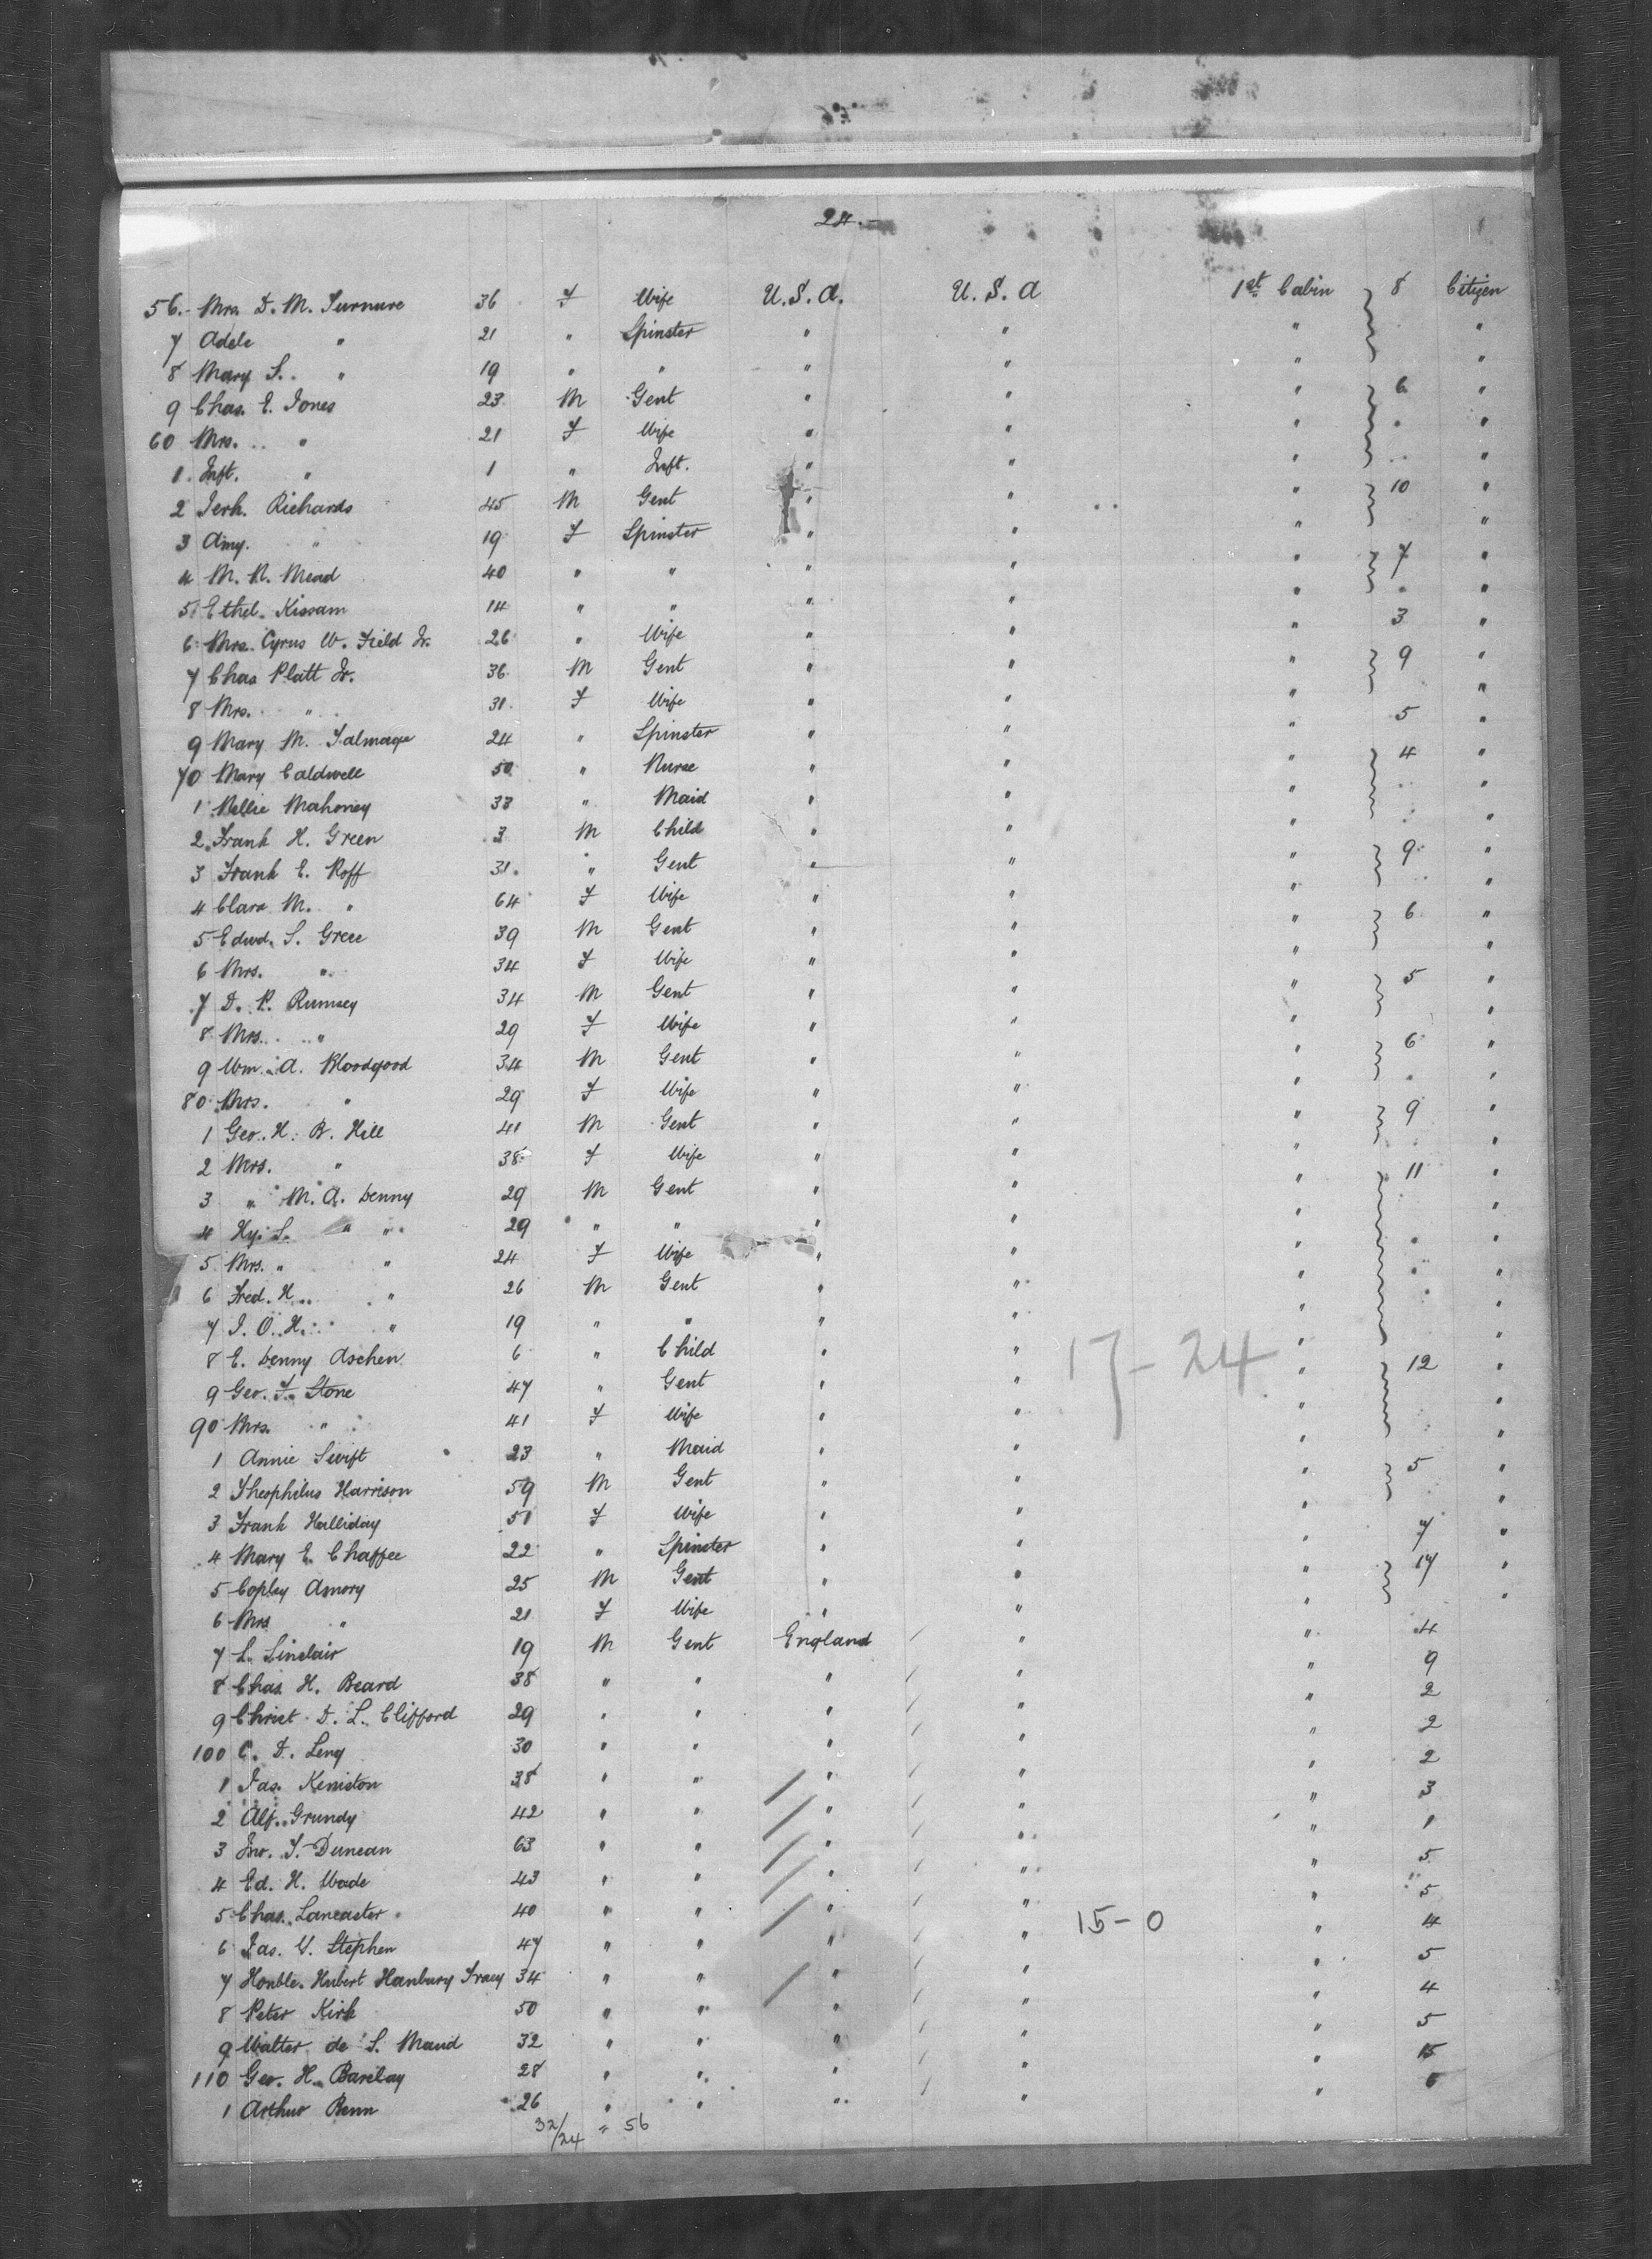 24.
56. Mrs. D. M. Turnure 36 F Wife U.S.A. U.S.A 1st Cabin 8 Citizen
7 Adele " 21 " Spinster " " " "
8 Mary S. " 19 " " " " " "
9 Chas. E. Jones 23 M Gent " " " 6 "
60 Mrs. " 21 F Wife " " " " "
1 Inft. " 1 " Inft. " " " "
2 Jerh. Richards 45 M Gent " " " 10 "
3 Amy. " 19 F Spinster " " " "
4 M. R. Mead 40 " " " " " 7 "
5 Ethel. Kissam 14 " " " " " " "
6 Mrs. Cyrus W. Field Jr. 26 " Wife " " " 3 "
7 Chas Platt Jr. 36 M Gent " " " 9 "
8 Mrs. " 31 F Wife " " " "
9 Mary M. Talmage 24 " Spinster " " " 5 "
70 Mary Caldwell 50 " Nurse " " " 4 "
1 Nellie Mahoney 33 " Maid " " " "
2 Frank H. Green 3 M Child " " " "
3 Frank E. Roff 31 " Gent " " " 9 "
4 Clara M. " 64 F Wife " " " "
5 Edwd. S. Grece 39 M Gent " " " 6 "
6 Mrs. " 34 F Wife " " " "
7 D. P. Rumsey 34 M Gent " " " 5 "
8 Mrs. " 29 F Wife " " " "
9 Wm. A. Bloodgood 34 M Gent " " " 6 "
80 Mrs. " 29 F Wife " " " " "
1 Geo. H. B. Hill 41 M Gent " " " 9 "
2 Mrs. " 38 F Wife " " " "
3 " M. A. Denny 29 M Gent " " " 11 "
4 Hy. S. " " 29 " " " " " "
5 Mrs. " " 24 F Wife " " " " "
6 Fred. H. " 26 M Gent " " " " "
7 J. O. H. " 19 " " " " " "
8 E. Denny Aschen 6 " Child " " " "
17-24
9 Geo. F. Stone 47 " Gent " " " 12 "
90 Mrs. " 41 F Wife " " " "
1 Annie Swift 23 " Maid " " " "
2 Theophilus Harrison 59 M Gent " " " 5 "
3 Frank Halliday 51 F Wife " " " "
4 Mary E. Chaffee 22 " Spinster " " " 7 "
5 Copley Amory 25 M Gent " " " 17 "
6 Mrs " 21 F Wife " " " "
7 L. Sinclair 19 M Gent England / " " 4
8 Chas. H. Beard 38 " " " / " " 9
9 Christ. D. L. Clifford 29 " " " / " " 2
100 C. D. Leng 30 " " " / " " 2
1 Jas. Keniston 38 " " " / " " 2
2 Alf. Grundy 42 " " " / " " 3
3 Jno. T. Duncan 63 " " " / " " 1
4 Ed. H. Wade 43 " " " / " " 5
5 Chas. Lancaster 40 " " " / " " 5
15-0
6 Jas. W. Stephen 47 " " " / " " 4
7 Honble. Hubert Hanbury Tracy 34 " " " / " " 5
8 Peter Kirk 50 " " " / " " 4
9 Walter de S. Maud 32 " " " / " " 5
110 Geo. H. Barclay 28 " " " / " " 15
1 Arthur Benn 26 " " " / " " 6
32/24 = 56